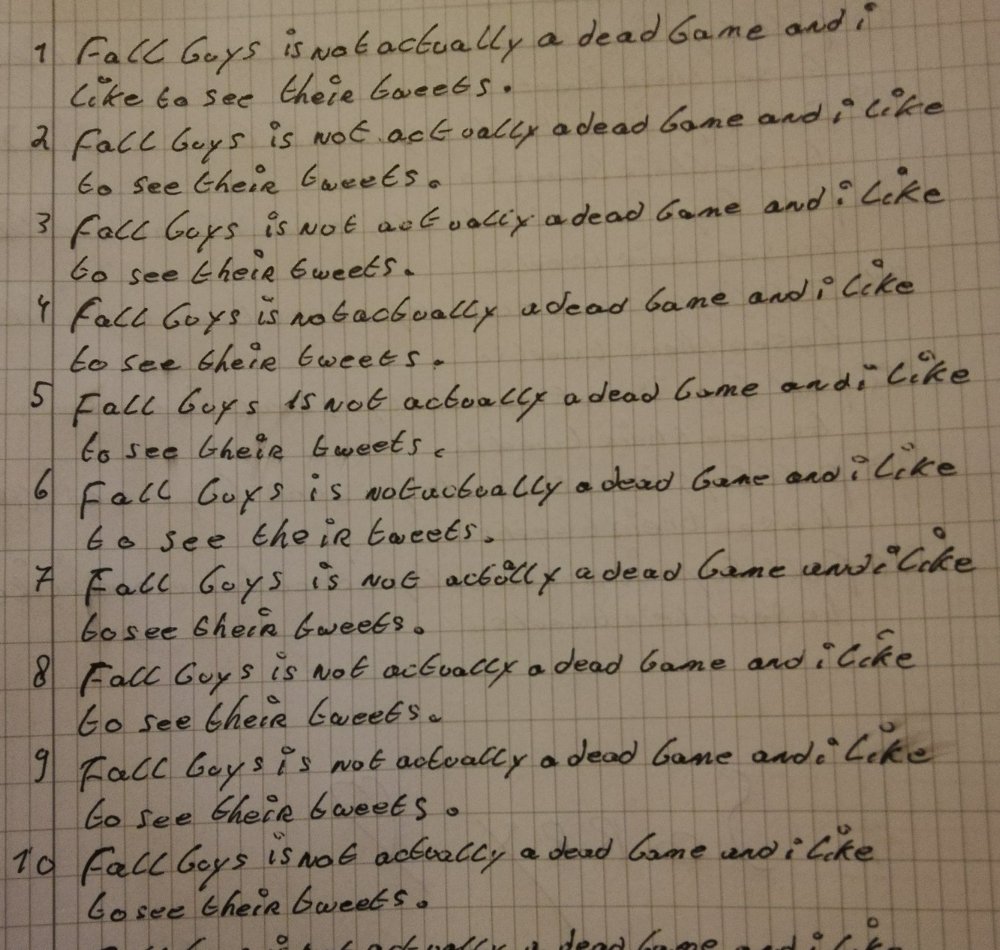 1 Fall Guys is not actually a dead Game and i
like to see their tweets.
2 Fall Guys is not actually a dead Game and i like
to see their tweets.
3 Fall Guys is not actually a dead Game and i like
to see their tweets.
4 Fall Guys is not actually a dead Game and i like
to see their tweets.
5 Fall Guys is not actually a dead Game and i like
to see their tweets.
6 Fall Guys is not actually a dead Game and i like
to see their tweets.
7 Fall Guys is not actually a dead Game and i like
to see their tweets.
8 Fall Guys is not actually a dead Game and i like
to see their tweets.
9 Fall Guys is not actually a dead Game and i like
to see their tweets.
10 Fall Guys is not actually a dead Game and i like
to see their tweets.
actually a dead Game and i